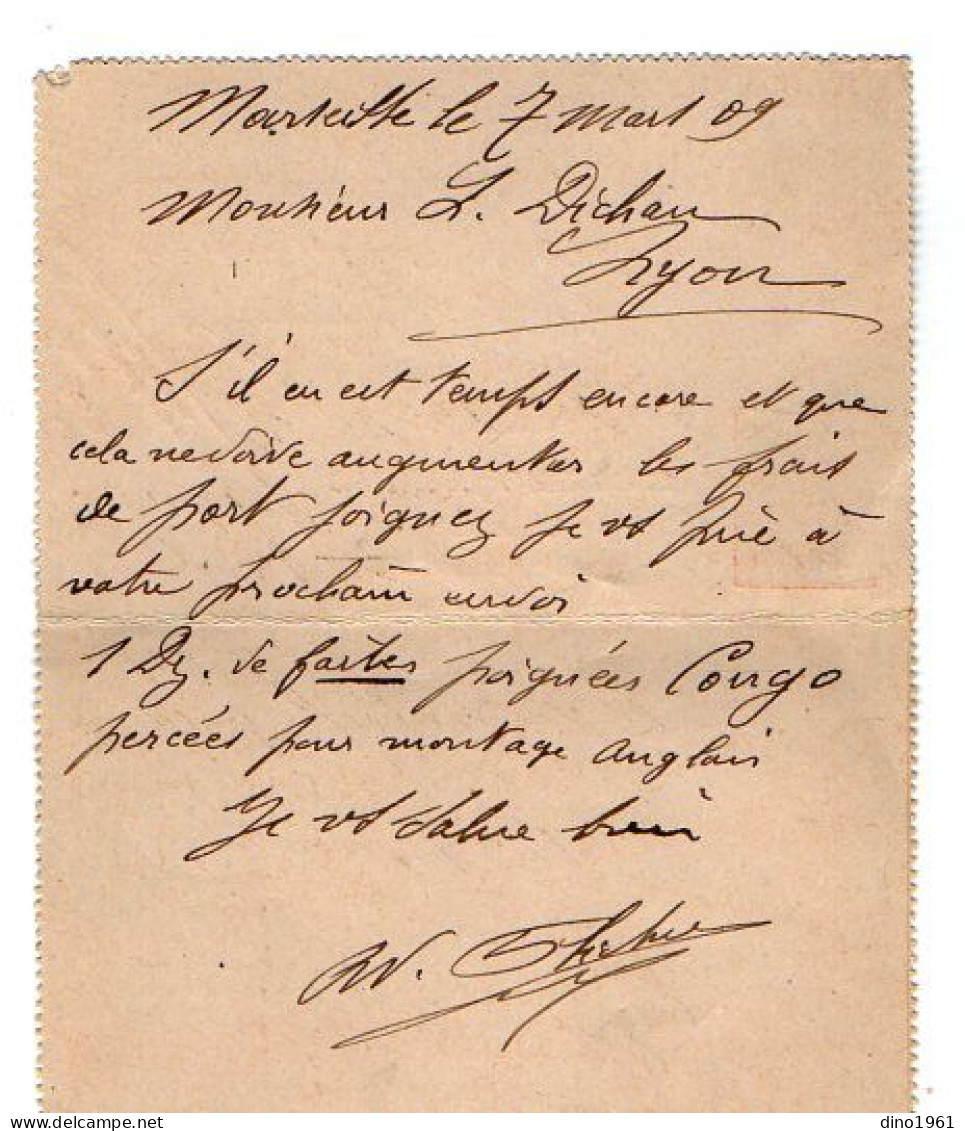 Marseille le 7 Mars 09
Monsieur L. Dichau
Lyon
S'il en est temps encore et que
cela ne doive augmenter les frais
de port joignez je vs prie à
votre prochain envoi
1 Dz. de fortes poignées Congo
percées pour montage anglais
Je vs salue bien
W.
delcampe.net
dino1961